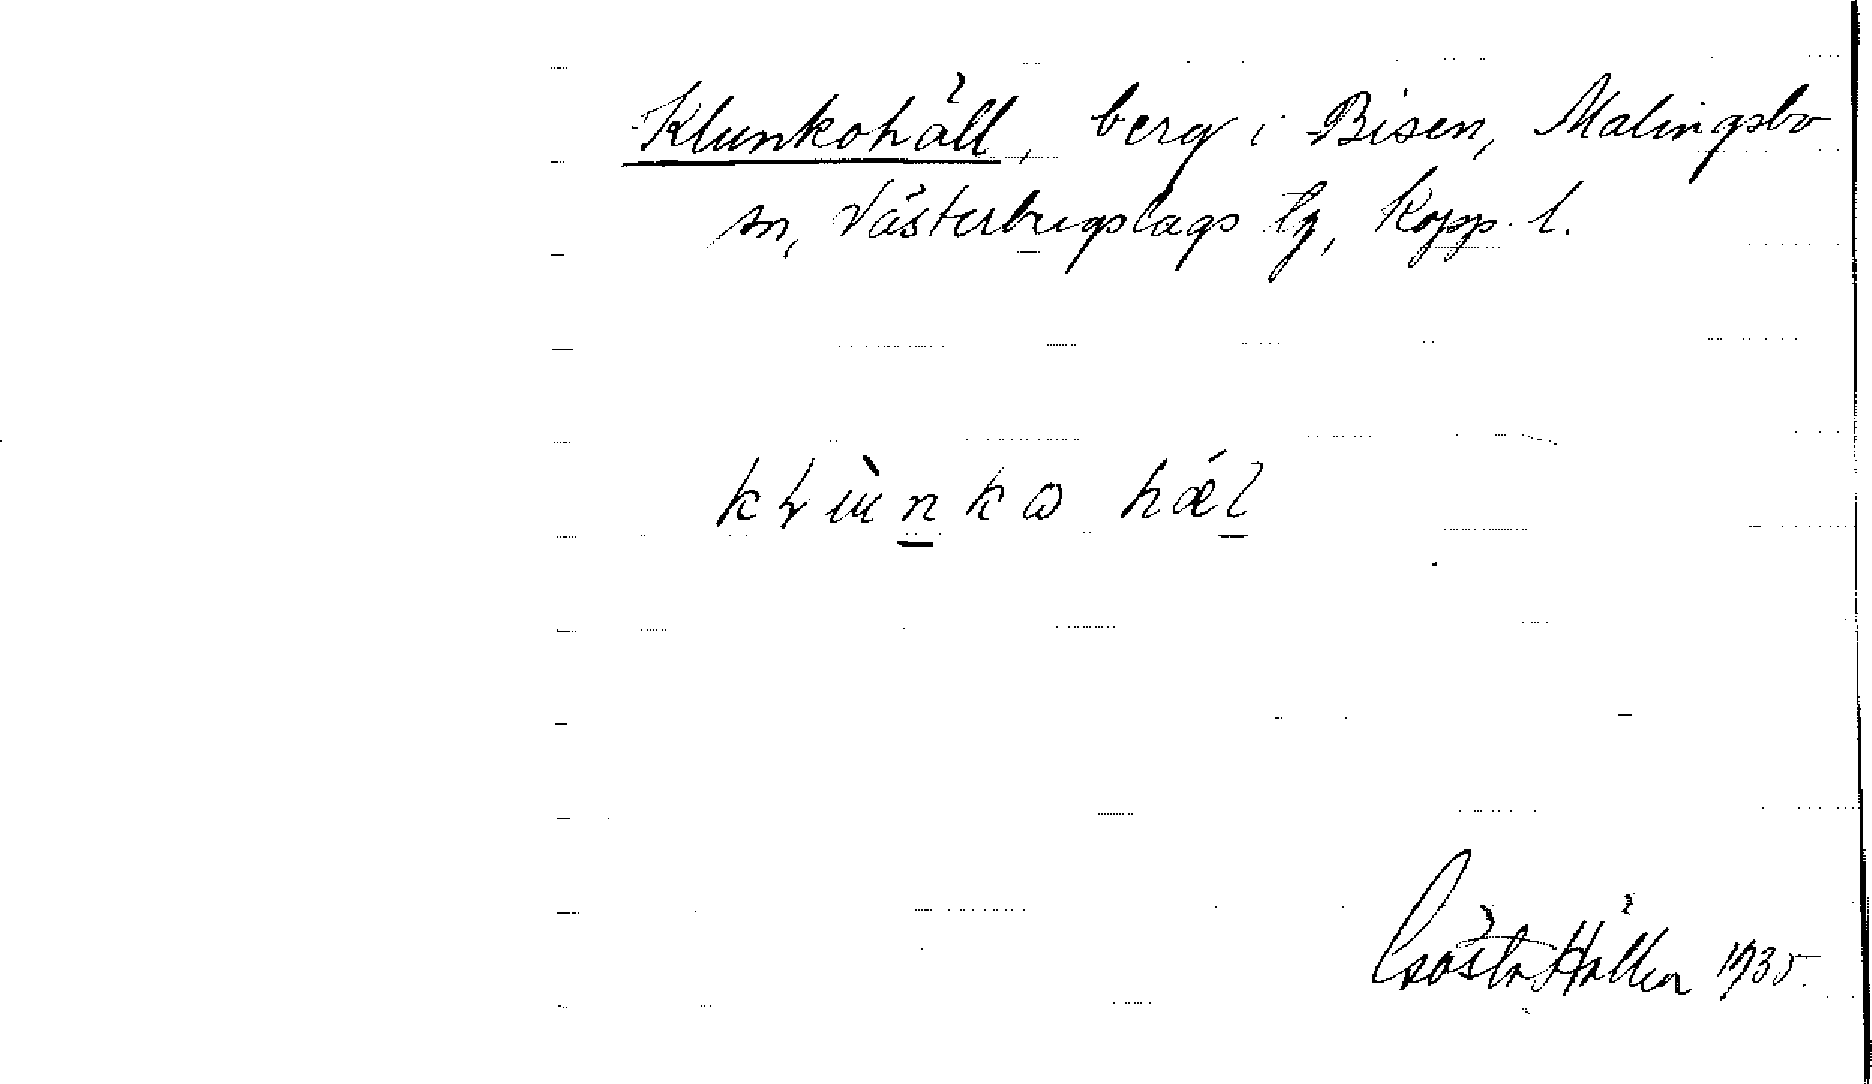 Klunkohäll, berg i Bisen, Malingsbo
sn, Västerbergslags tg, Kopp. l.
klùnko hǽl
Gösta Hällen 1935.